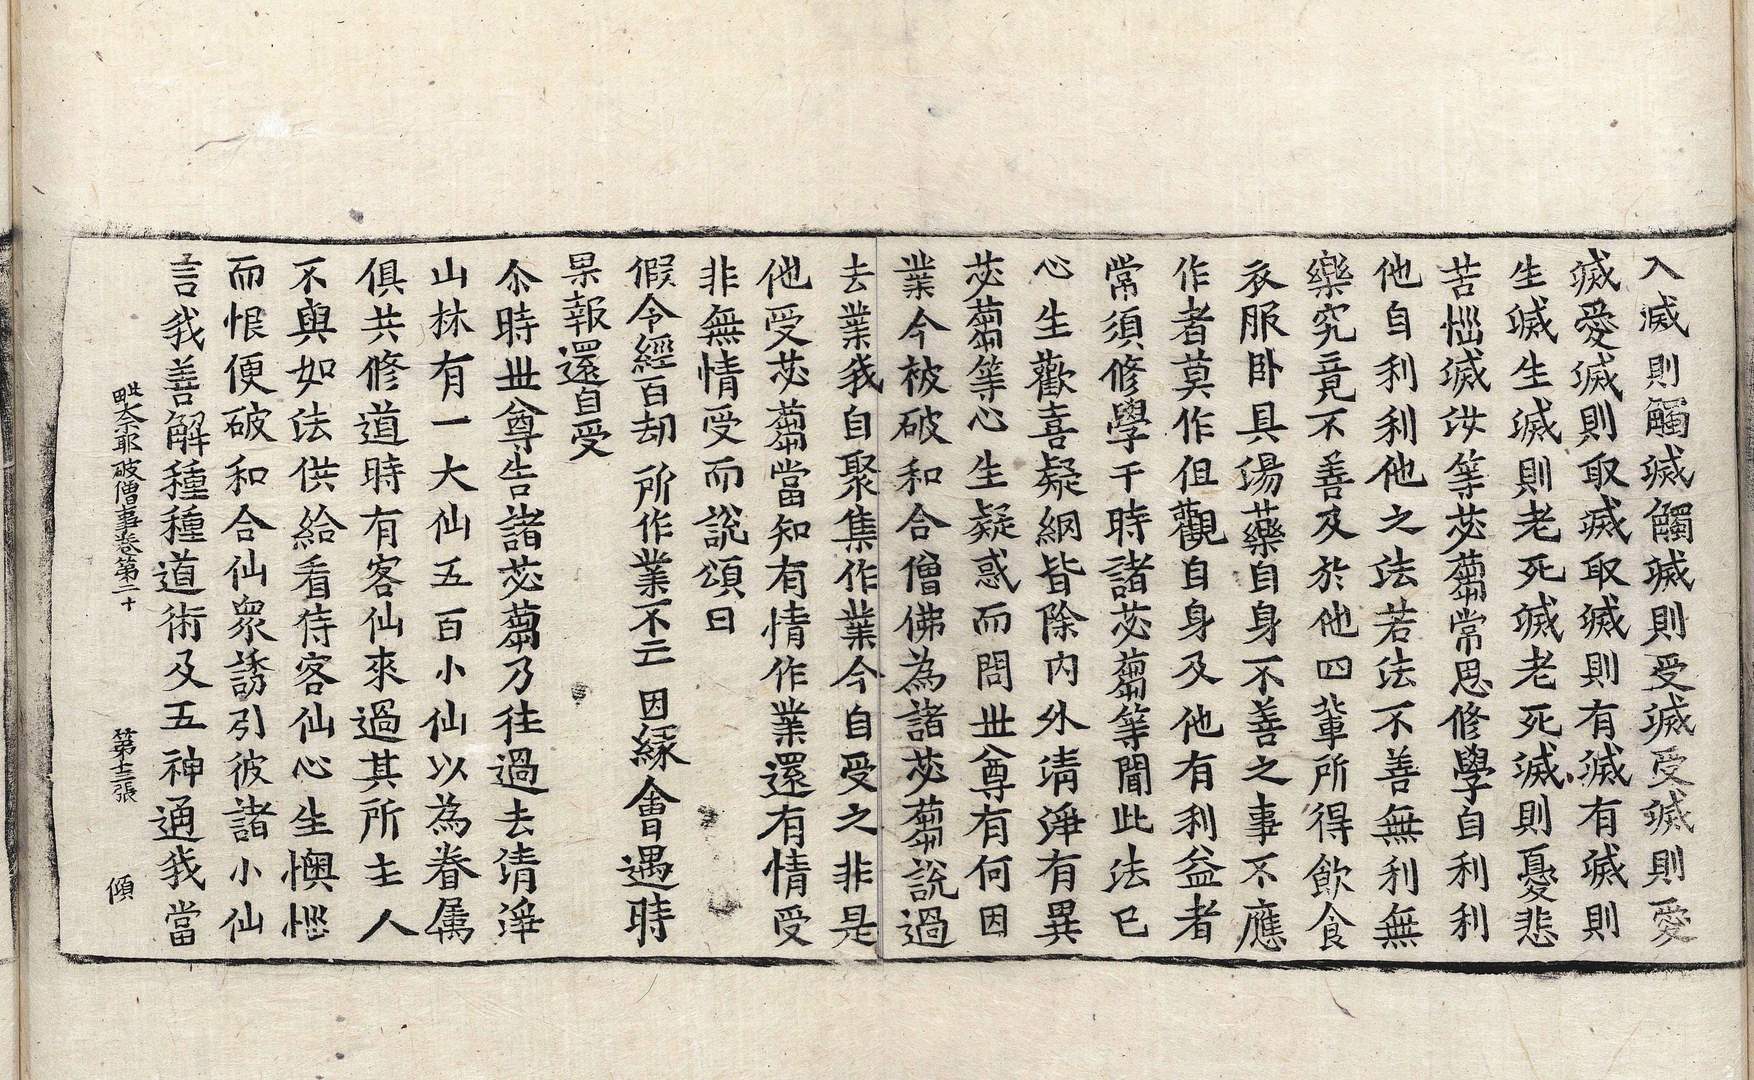 入滅則觸滅觸滅則受滅受滅則愛
滅愛滅則取滅取滅則有滅有滅則
生滅生滅則老死滅老死滅則憂悲
苦惱滅汝等苾蒭常思修學自利利
他自利利他之法若法不善無利無
樂究竟不善及於他四輩所得飲食
衣服卧具湯藥自身不善之事不應
作者莫作但觀自身及他有利益者
常須修學于時諸苾蒭等聞此法已
心生歡喜疑網皆除內外清淨有異
苾蒭等心生疑惑而問世尊有何因
業今被破和合僧佛為諸苾蒭說過
去業我自聚集作業今自受之非是
他受苾蒭當知有情作業還有情受
非無情受而說頌曰
假令經百劫 所作業不亡 因緣會遇時
果報還自受
尒時世尊告諸苾蒭乃往過去清淨
山林有一大仙五百小仙以為眷属
俱共修道時有客仙來過其所主人
不與如法供給看侍客仙心生懊惱
而恨便破和合仙眾誘引彼諸小仙
言我善解種種道術及五神通我當
毗奈耶破僧事卷第二十 第十三張 傾